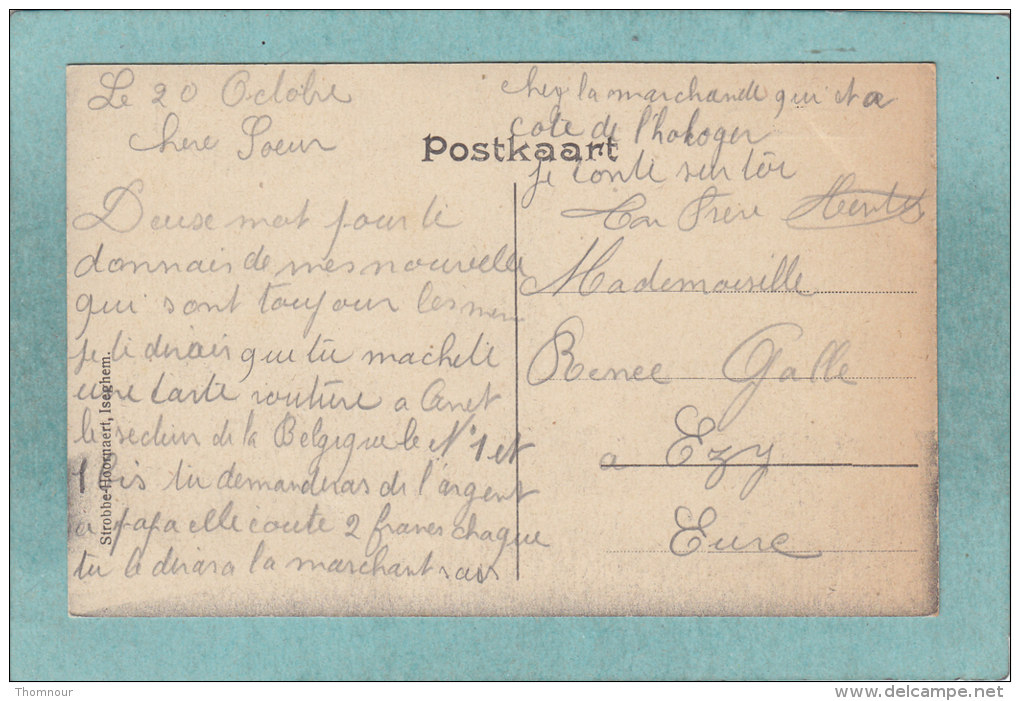 Le 20 Octobre
chere Soeur
Deuse mot pour ti
donnais de mes nouvelle
qui sont toujour les meme
je ti dirais que tu macheti
une Carte routiere a Anet
le section de la Belgique le N° 1 et
1 bis tu demanderas de l'argent
a papa elle coute 2 francs chaque
tu le diras a la marchant
chez la marchande qui et a
coté de l'horloger
je conte sur toi
Ton Frere
Postkaart
Mademoiselle
Renee Galle
a Ezy
Eure
Strobbe-Hoornaert, Iseghem.
Thomnour
http://www.delcampe.net